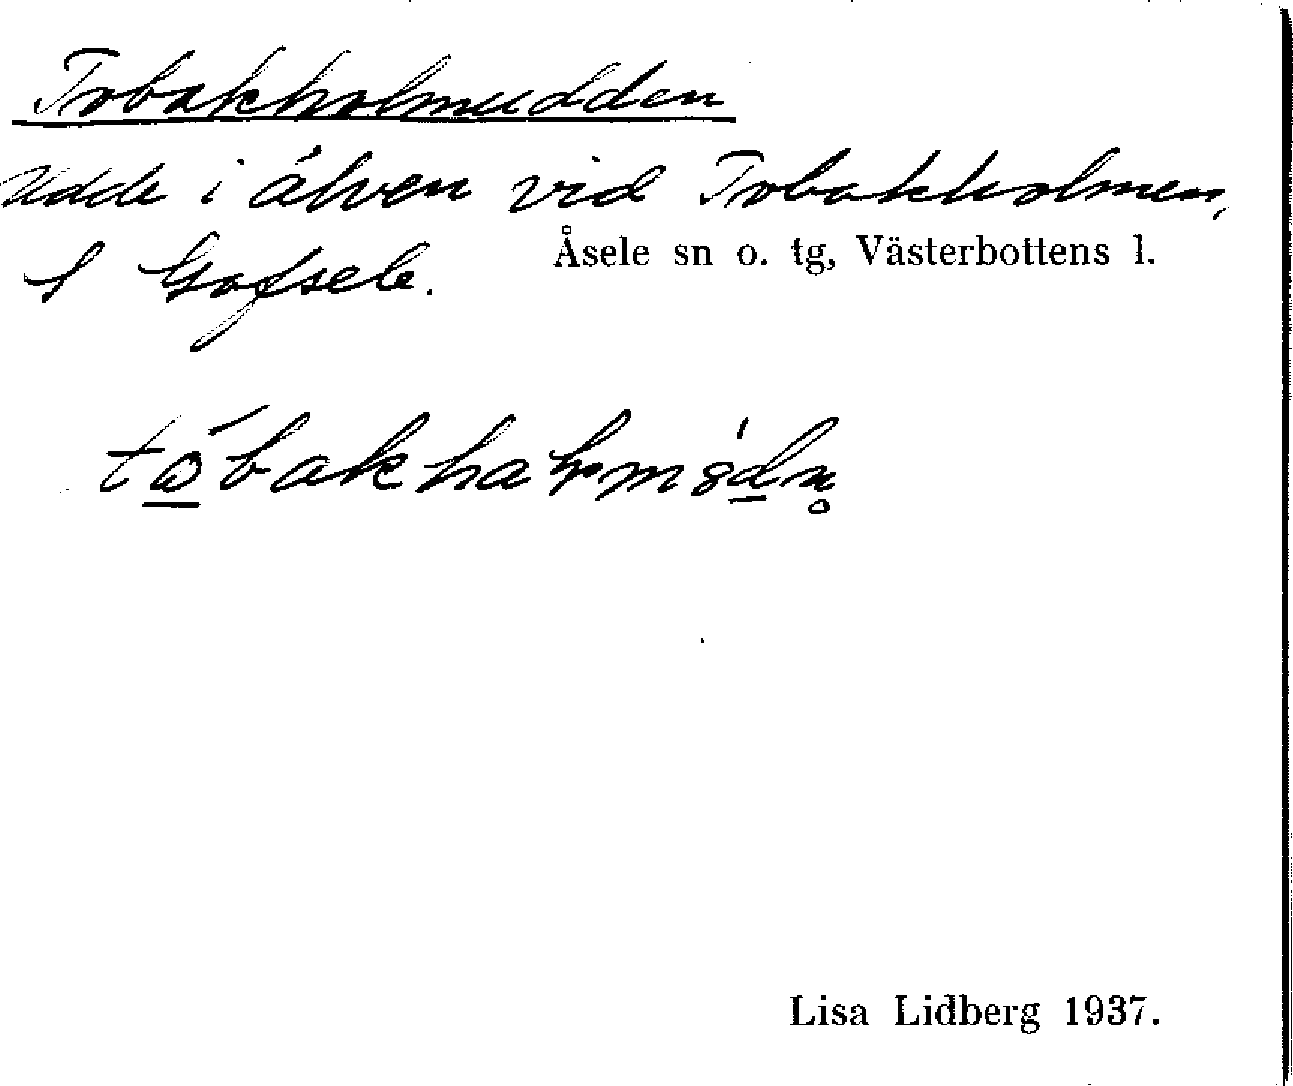 Tobakholmudden
Udde i älven vid Tobakholmen,
S Gafsele.
Åsele sn o. tg, Västerbottens l.
Lisa Lidberg 1937.